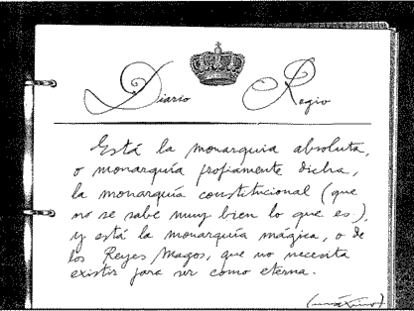 Diario Regio
Está la monarquía absoluta,
o monarquía propiamente dicha,
la monarquía constitucional (que
no se sabe muy bien lo que es),
y está la monarquía mágica, o de
los Reyes Magos, que no necesita
existir para ser como eterna.
(máximo)